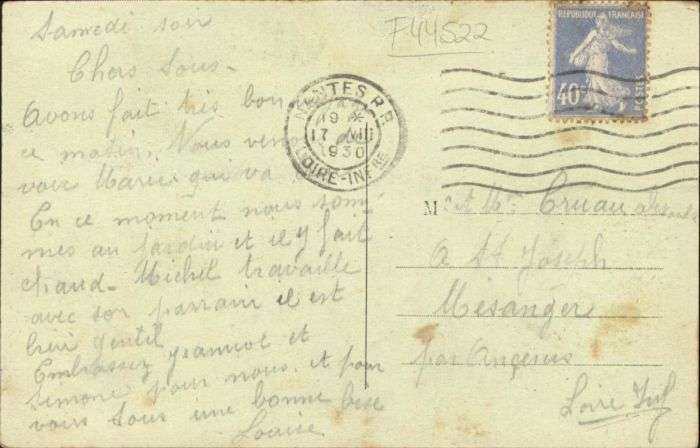 Samedi soir
Chers Tous -
Avons fait très bon
ce matin. Nous ven
voir Marie qui va
En ce moment nous som
mes au jardin et il y fait
chaud - Michel travaille
avec son parrain il est
bien gentil
Embrassez Jeannot et
Simone pour nous et pour
vous tous une bonne bise
Louise
F44522
NANTES R.P.
19
17 VIII
1930
LOIRE-INFRE
REPUBLIQUE FRANÇAISE
40c
POSTES
M. et Me Cruau
à St Joseph
Mésanger
par Ancenis
Loire Inf